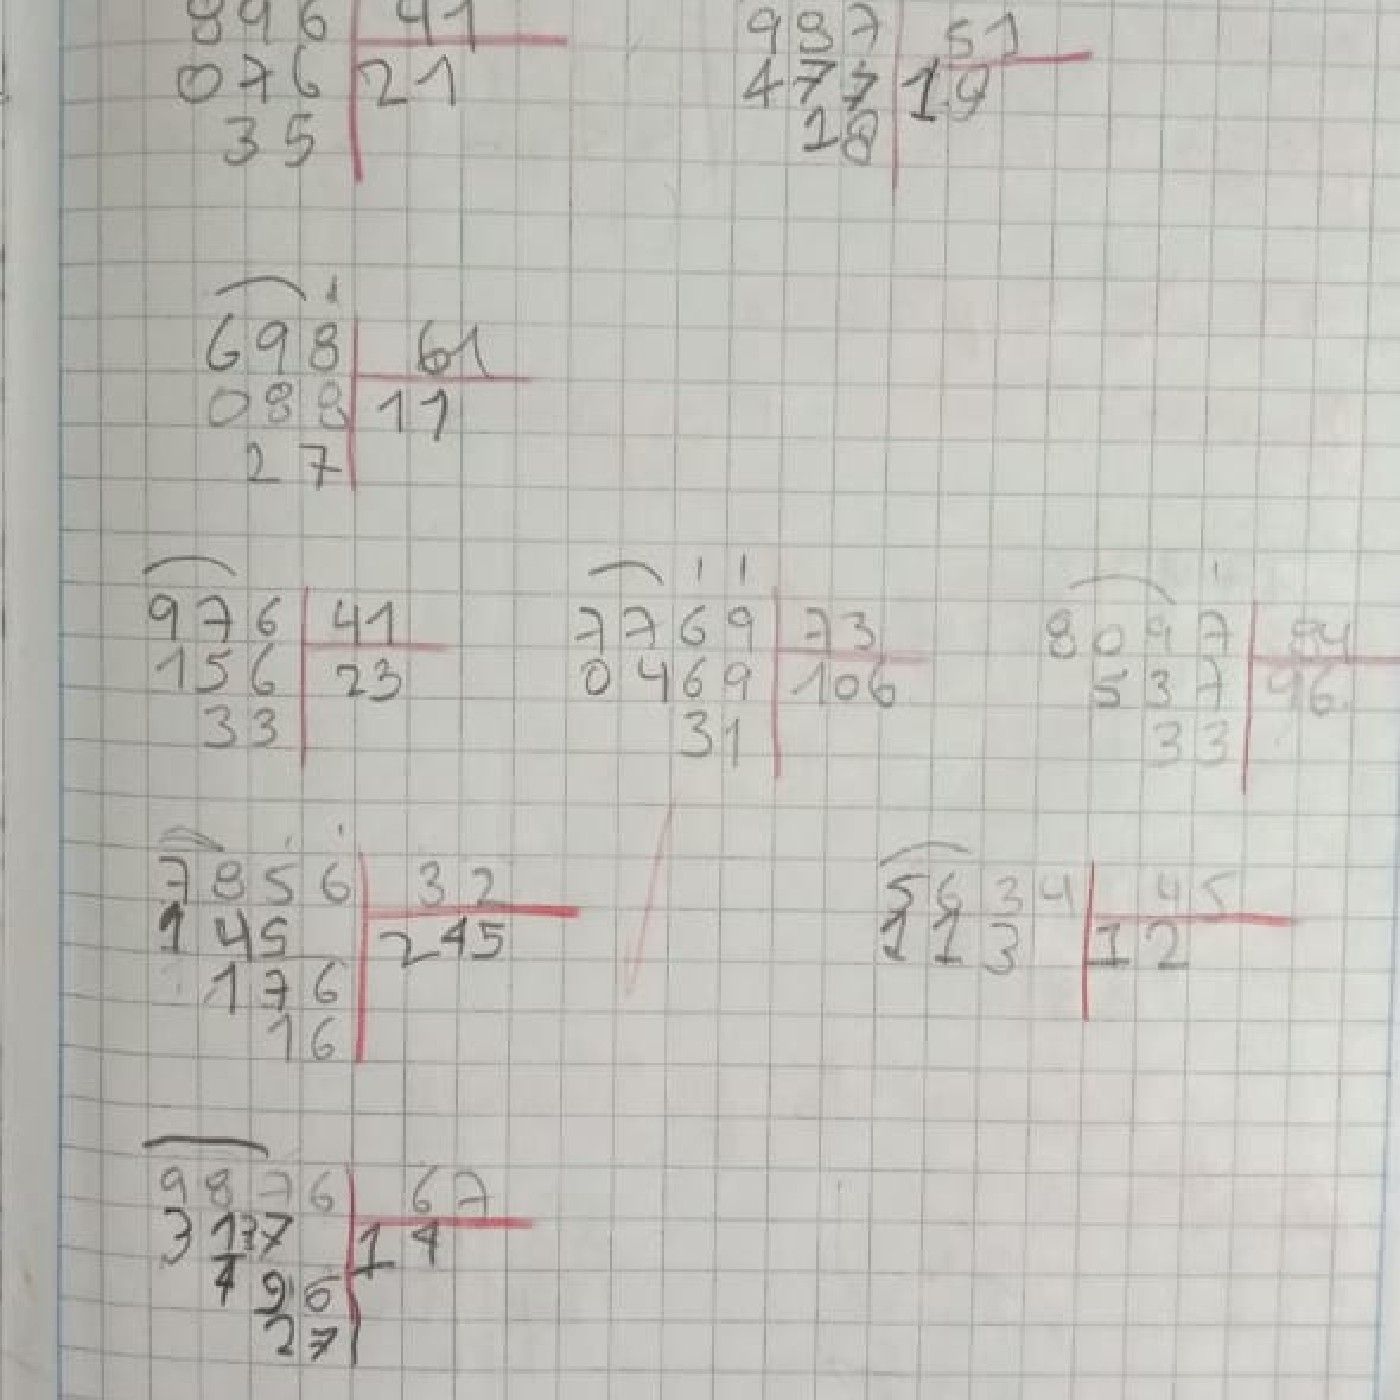 896 41
076 21
35
987 51
477 19
18
698 61
088 11
27
976 41
156 23
33
7769 73
0469 106
31
8097 84
537 96
33
7856 32
145 245
176
16
5634 45
113 12
9876 67
3177 14
496
27